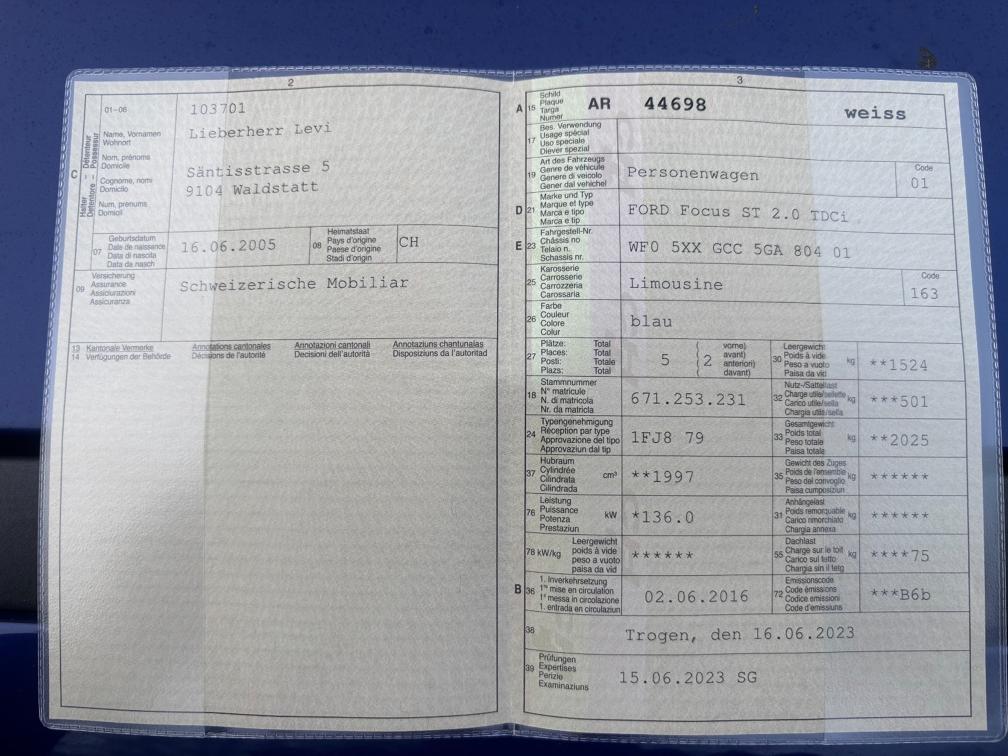 2
01-06
103701
C
Halter – Détenteur
Detentore – Possessur
Name, Vornamen
Wohnort
Nom, prénoms
Domicile
Cognome, nomi
Domicilio
Num, prenums
Domicil
Lieberherr Levi
Säntisstrasse 5
9104 Waldstatt
07
Geburtsdatum
Date de naissance
Data di nascita
Data da nasch
16.06.2005
08
Heimatstaat
Pays d'origine
Paese d'origine
Stadi d'origin
CH
09
Versicherung
Assurance
Assicurazioni
Assicuranza
Schweizerische Mobiliar
13 Kantonale Vermerke
14 Verfügungen der Behörde
Annotations cantonales
Décisions de l'autorité
Annotazioni cantonali
Decisioni dell'autorità
Annotaziuns chantunalas
Disposiziuns da l'autoritad
3
A 15
Schild
Plaque
Targa
Numer
AR 44698 weiss
17
Bes. Verwendung
Usage spécial
Uso speciale
Diever spezial
19
Art des Fahrzeugs
Genre de véhicule
Genere di veicolo
Gener dal vehichel
Personenwagen
Code
01
D 21
Marke und Typ
Marque et type
Marca e tipo
Marca e tip
FORD Focus ST 2.0 TDCi
E 23
Fahrgestell-Nr.
Châssis no
Telaio n.
Schassis nr.
WF0 5XX GCC 5GA 804 01
25
Karosserie
Carrosserie
Carrozzeria
Carossaria
Limousine
Code
163
26
Farbe
Couleur
Colore
Colur
blau
27
Plätze: Total
Places: Total
Posti: Totale
Plazs: Total
5
( 2
vorne)
avant)
anteriori)
davant)
30
Leergewicht
Poids à vide
Peso a vuoto
Paisa da vid
kg
**1524
18
Stammnummer
N° matricule
N. di matricola
Nr. da matricla
671.253.231
32
Nutz-/Sattellast
Charge utile/sellette
Carico utile/sella
Chargia utila/sella
kg
***501
24
Typengenehmigung
Réception par type
Approvazione del tipo
Approvaziun dal tip
1FJ8 79
33
Gesamtgewicht
Poids total
Peso totale
Paisa totala
kg
**2025
37
Hubraum
Cylindrée
Cilindrata
Cilindrada
cm³
**1997
35
Gewicht des Zuges
Poids de l'ensemble
Peso del convoglio
Paisa cumposiziun
kg
******
76
Leistung
Puissance
Potenza
Prestaziun
kW
*136.0
31
Anhängelast
Poids remorquable
Carico rimorchiato
Chargia annexa
kg
******
78 kW/kg
Leergewicht
poids à vide
peso a vuoto
paisa da vid
******
55
Dachlast
Charge sur le toit
Carico sul tetto
Chargia sin il tetg
kg
****75
B 36
1. Inverkehrsetzung
1re mise en circulation
1a messa in circolazione
1. entrada en circulaziun
02.06.2016
72
Emissionscode
Code émissions
Codice emissioni
Code d'emissiuns
***B6b
38
Trogen, den 16.06.2023
39
Prüfungen
Expertises
Perizie
Examinaziuns
15.06.2023 SG